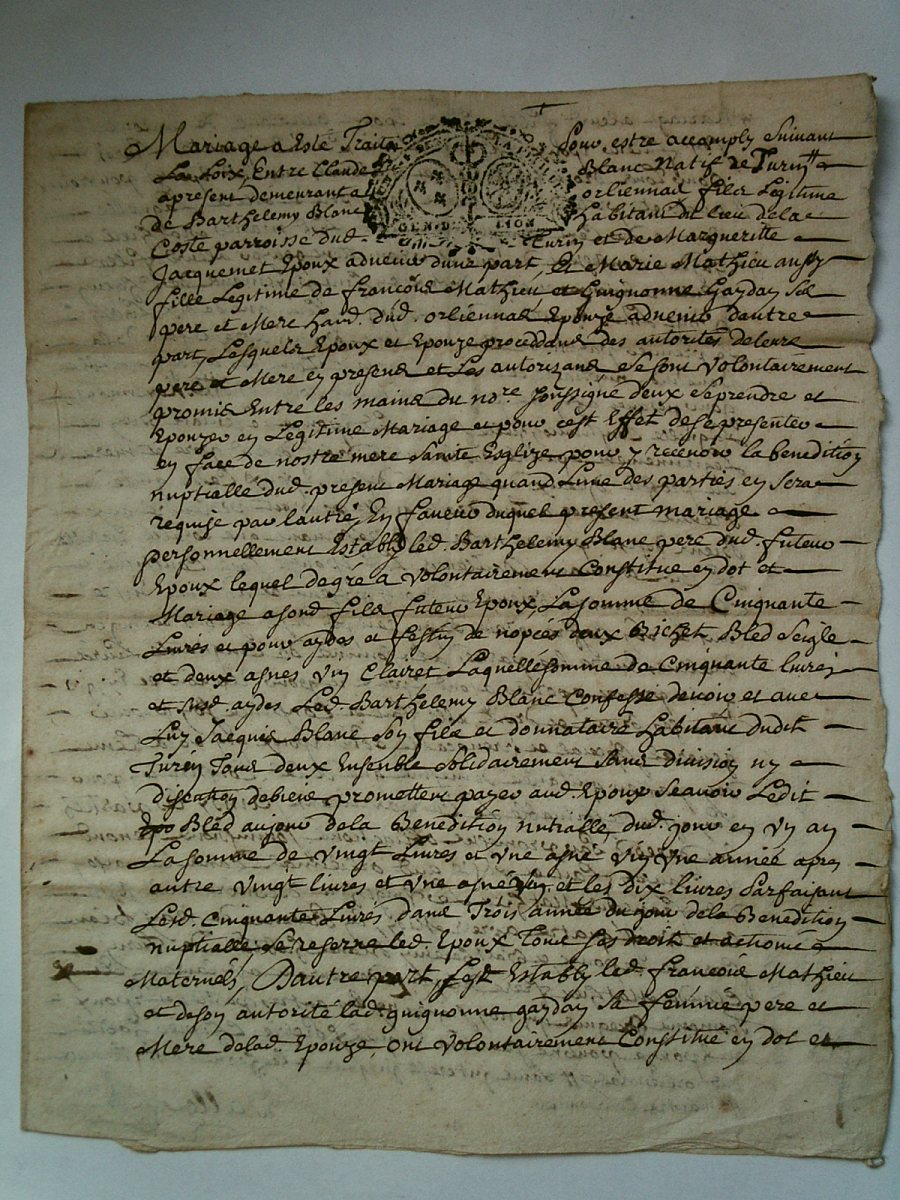 Mariage a Esté Traité Pour estre accomply Suivant
La Loix, Entre Claude Blanc Natif de Turin
apresent demeurant a orliennas fils Legitime
de Barthelemy Blanc habitant du lieu de la
GEN.D. LION
Coste parroisse dud. Turin et de Margueritte
Jacquemet Epoux advenir dune part, Et Marie Mathieu aussy
fille Legitime de françois Mathieu et Guignonne Gayday Ses
pere et Mere hand. dud. orliennas Epouze advenir dautre
part, Lesquels Epoux et Epouze proceddans des autorités de leurs
pere et Mere en presens et Les autorizans Se sont Volontairement
promis Entre les mains du nore soussigné deux Se prendre et
Epouzer en Legitime Mariage et pour cest Effet de se presenter
en face de nostre mere Sainte Esglize pour y recevoir la benedition
nuptialle dud. present Mariage quand Lune des parties en Sera
requise par lautre, En faveur duquel present mariage
personnellement Estably led. Barthelemy Blanc pere dud. futeur
Epoux lequel de gré a Volontairement Constitué en dot et
Mariage a sond. fils futeur Epoux, La somme de Cinquante
Livres et pour aydes et festin de nopces deux Bichet Bled Seigle
et deux asnés vin Clairet Laquelle somme de Cinquante livres
et susd. aydes Led. Barthelemy Blanc Confesse devoir et avec
Luy Jacques Blanc Son fils et donnataire habitant dudit
Turin Tous deux Ensemble Solidairement Sans division ny
discution de biens promettent payer aud. Epoux Scavoir Ledit
Bled au jour de la Benedition nutialle, dud. jour en un an
La somme de Vingt Livres et une asné vin, une année apres
autre Vingt livres et une asné vin et les dix livres Parfaisant
Lesd. Cinquante Livres dans Trois année du jour de la Benedition
nuptialle, Se reserve led. Epoux Tous Ses droit et actions
Maternels, Dautre part, sest Estably led. François Mathieu
et de son autorité lad. guignonne gayday Sa femme pere et
Mere de lad. Epouze, ont Volontairement Constitué en dot et